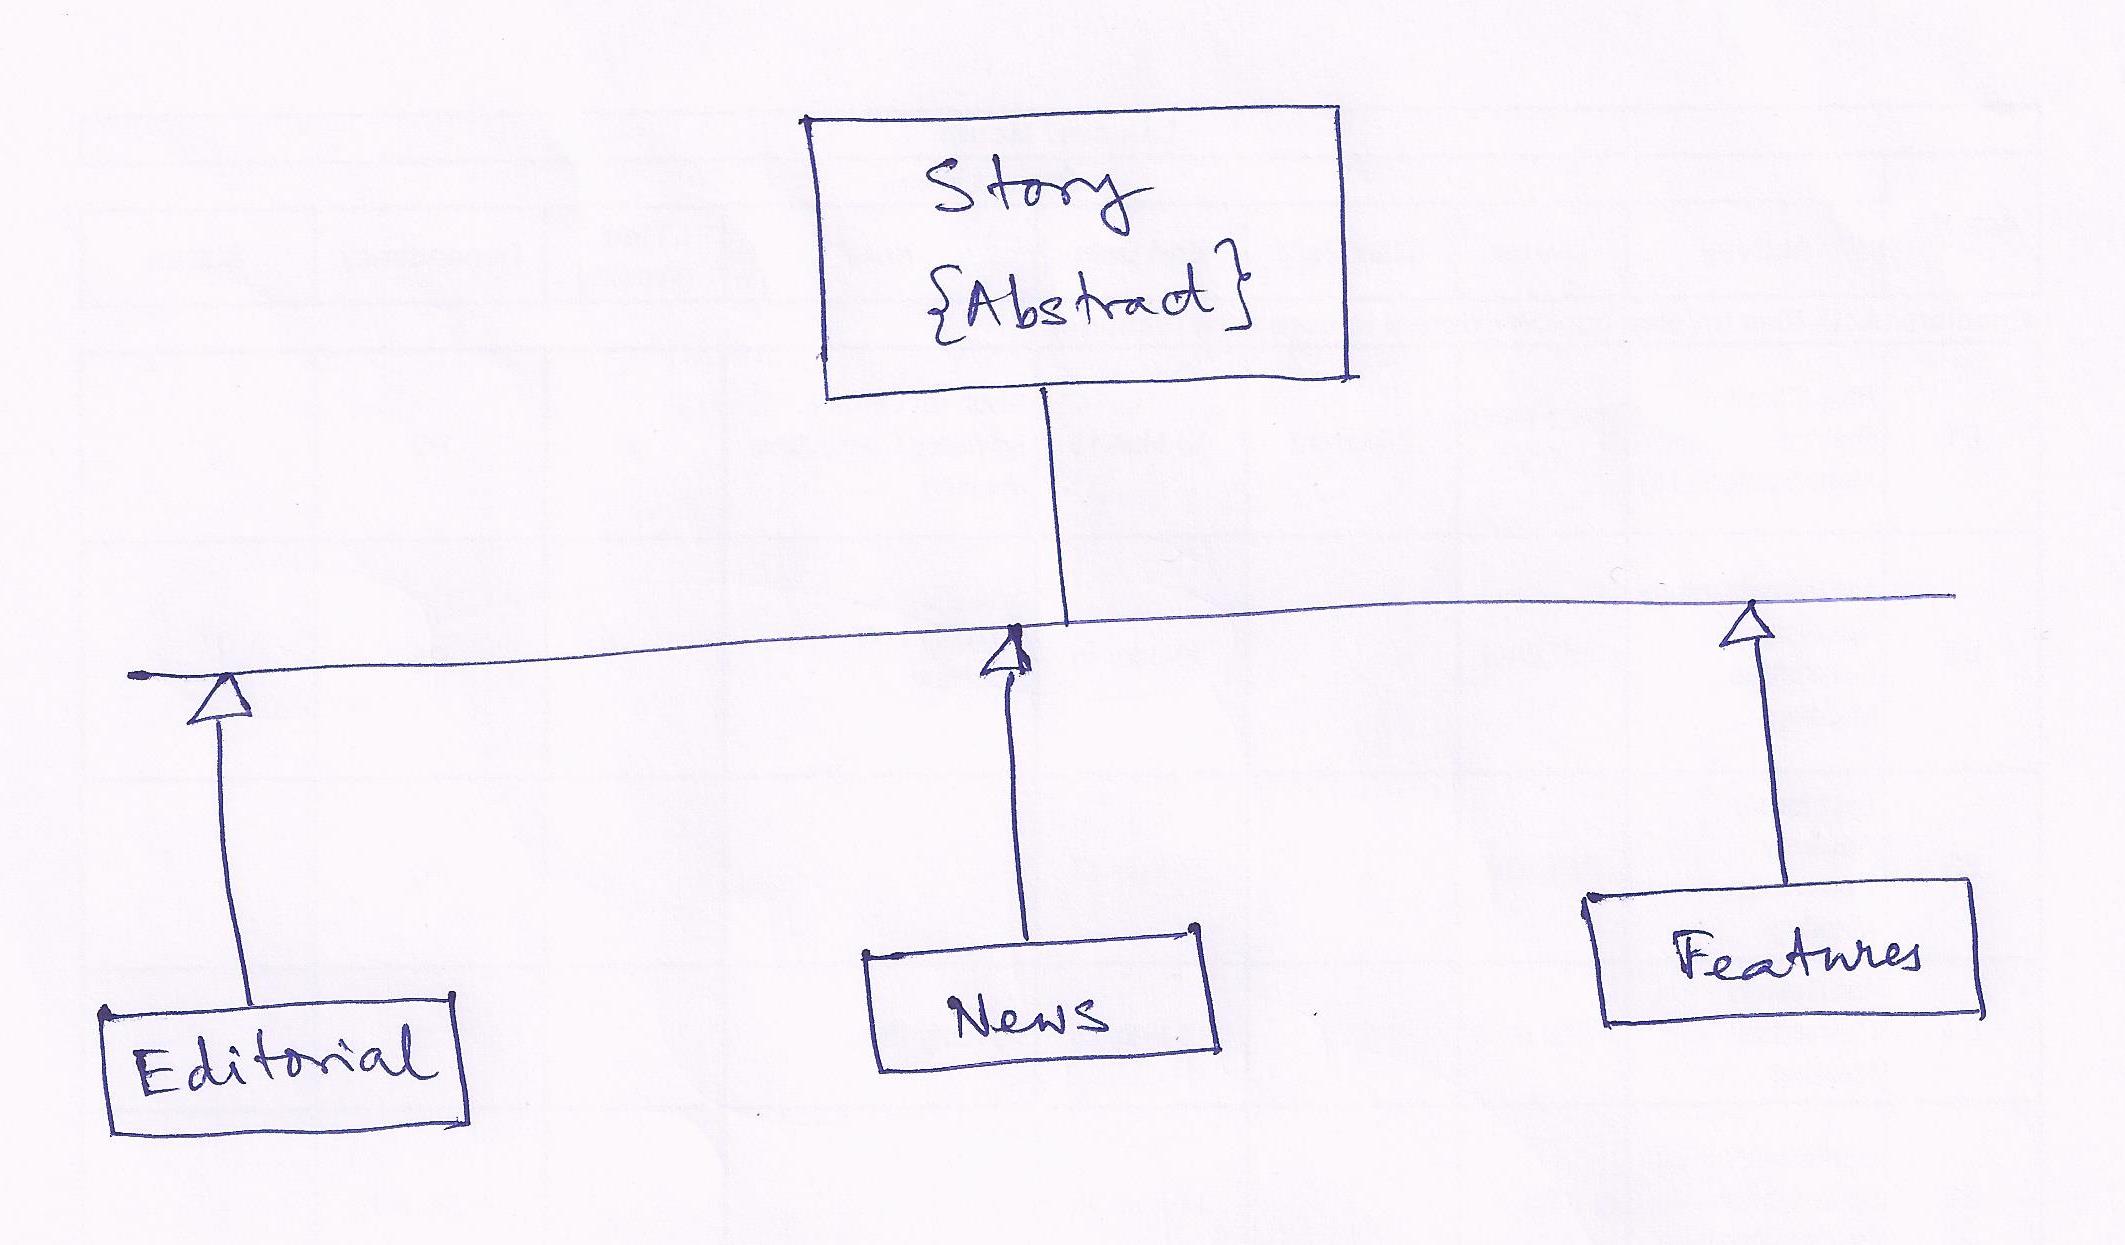 Story
{Abstract}
Editorial
News
Features